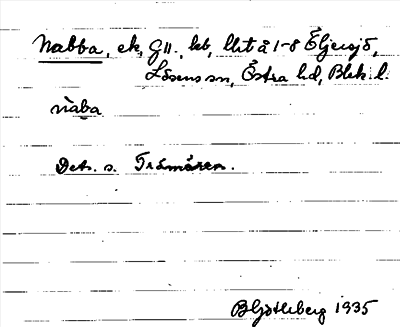 Nabba, ek, G11. kb, litt å 1-8 Eljersjö,
Lösens sn, Östra hd, Blek. l.
nàba
Det. s. Tromåren.
B Göthberg 1935